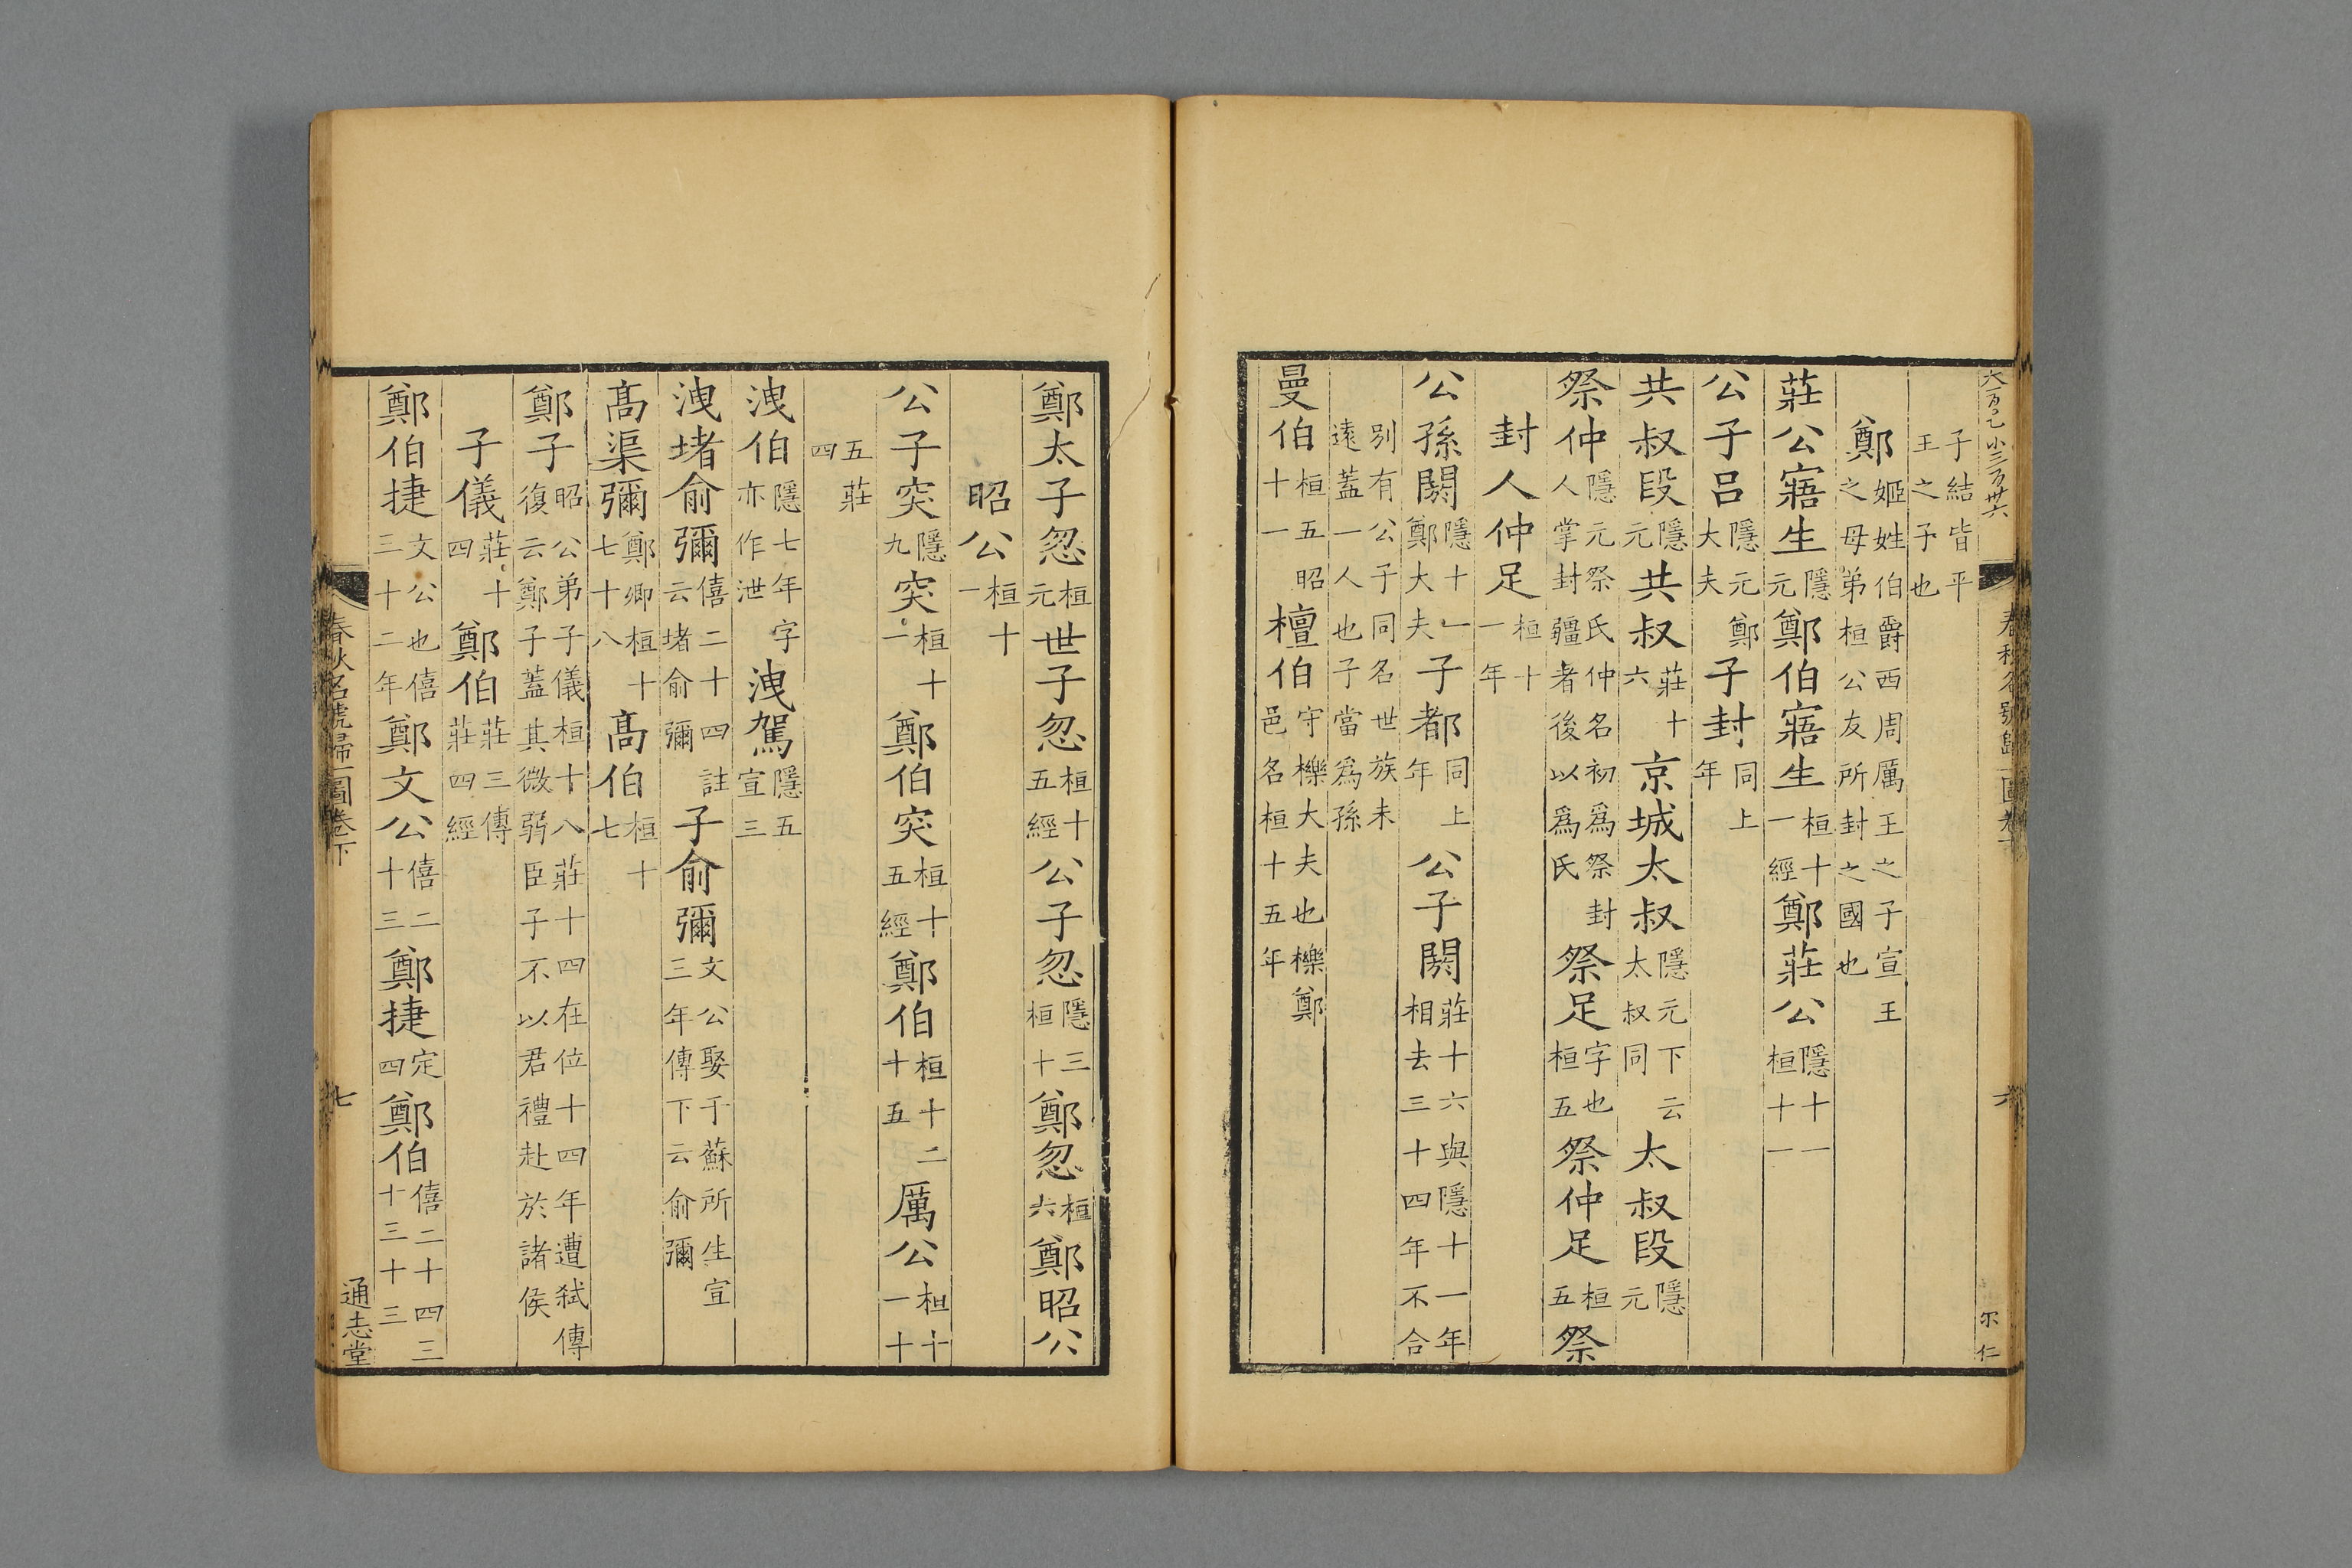 大百乙小三百卅六
春秋名號歸一圖卷下
六
尔仁
子結皆平王之子也
鄭姬姓伯爵西周厲王之子宣王之母弟桓公友所封之國也
莊公寤生隱元鄭伯寤生桓十一經鄭莊公隱十一桓十一
公子呂隱元鄭大夫子封同上年
共叔段隱元共叔莊十六京城太叔隱元下云太叔同太叔段隱元
祭仲隱元祭氏仲名初爲祭封人掌封疆者後以爲氏祭足字也桓五祭仲足桓五祭
封人仲足桓十一年
公孫閼隱十一鄭大夫子都同上年公子閼莊十六與隱十一年相去三十四年不合
別有公子同名世族未遠蓋一人也子當爲孫
曼伯桓五昭十一檀伯守櫟大夫也櫟鄭邑名桓十五年
鄭太子忽桓元世子忽桓十五經公子忽隱三桓十鄭忽桓六鄭昭公
昭公桓十一
公子突隱九突桓十一鄭伯突桓十五經鄭伯桓十二十五厲公桓十一十
五莊四
洩伯隱七年字亦作泄洩駕隱五宣三
洩堵俞彌僖二十四註云堵俞彌子俞彌文公娶于蘇所生宣三年傳下云俞彌
髙渠彌鄭卿桓十七十八髙伯桓十七
鄭子昭公弟子儀桓十八莊十四在位十四年遭弑傳復云鄭子蓋其微弱臣子不以君禮赴於諸侯
子儀莊十四鄭伯莊三傳莊四經
鄭伯捷文公也僖三十二年鄭文公僖二十三鄭捷定四鄭伯僖二十四三十三十三
春秋名號歸一圖卷下
七
通志堂